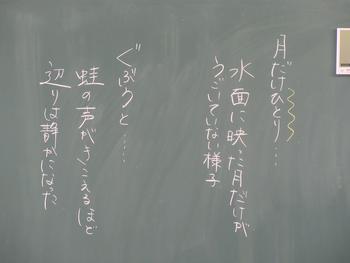 月だけひとり…
水面に映った月だけが
うごいていない様子
ぐぶりと……
蛙の声がきこえるほど
辺りは静かになった